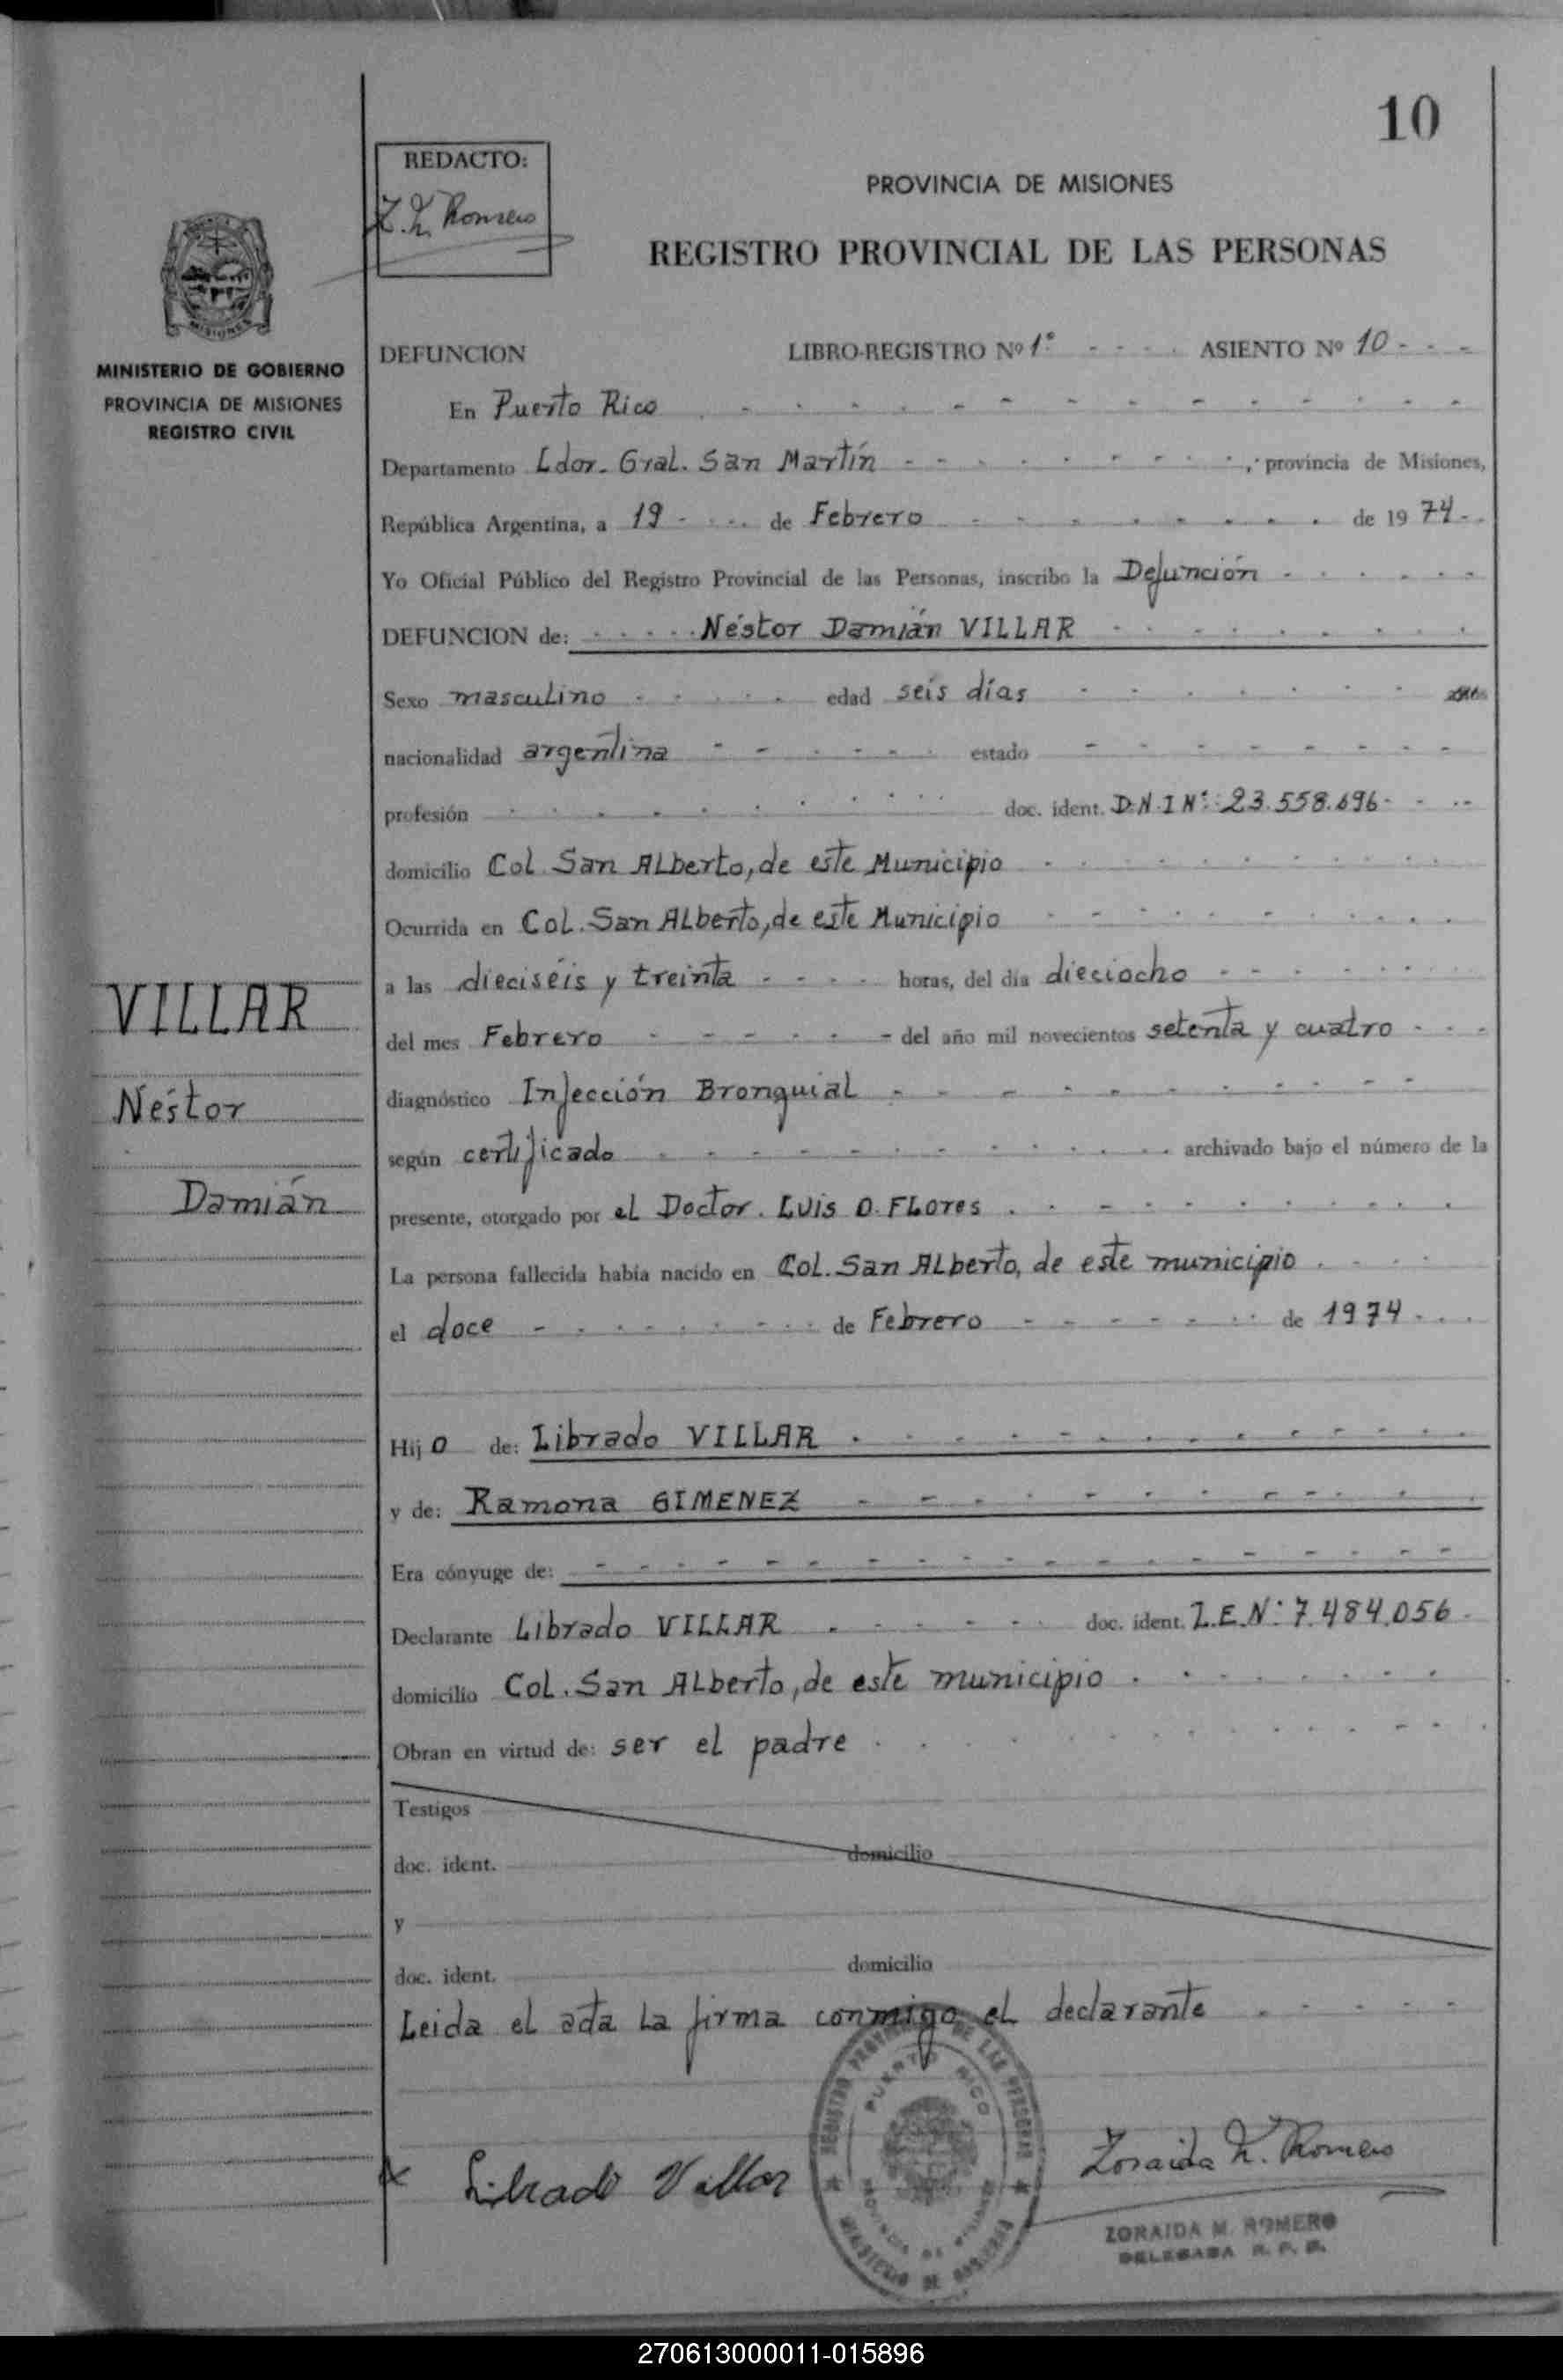 10
REDACTO:
Z. M. Romero
PROVINCIA DE MISIONES
REGISTRO PROVINCIAL DE LAS PERSONAS
MISIONES
MINISTERIO DE GOBIERNO
PROVINCIA DE MISIONES
REGISTRO CIVIL
DEFUNCION LIBRO-REGISTRO Nº 1º ASIENTO Nº 10
En Puerto Rico
Departamento Ldor. Gral. San Martín, provincia de Misiones,
República Argentina, a 19 de Febrero de 1974
Yo Oficial Público del Registro Provincial de las Personas, inscribo la Defunción
DEFUNCION de: Néstor Damián VILLAR
Sexo masculino edad seis días
nacionalidad argentina estado
profesión doc. ident. D.N.I Nº: 23.558.696
domicilio Col. San Alberto, de este Municipio
Ocurrida en Col. San Alberto, de este Municipio
a las dieciséis y treinta horas, del día dieciocho
del mes Febrero del año mil novecientos setenta y cuatro
diagnóstico Infección Bronquial
según certificado archivado bajo el número de la
presente, otorgado por el Doctor. Luis O. Flores
La persona fallecida había nacido en Col. San Alberto, de este municipio
el doce de Febrero de 1974
VILLAR
Néstor
Damián
Hijo de: Librado VILLAR
y de: Ramona GIMENEZ
Era cónyuge de:
Declarante Librado VILLAR doc. ident. L.E.Nº: 7.484.056
domicilio Col. San Alberto, de este municipio
Obran en virtud de: ser el padre
Testigos
doc. ident. domicilio
y
doc. ident. domicilio
Leida el acta la firma conmigo el declarante
REGISTRO PROVINCIAL DE LAS PERSONAS
PUERTO RICO
PROVINCIA DE MISIONES
MINISTERIO DE GOBIERNO
x Librado Villar
Zoraida M. Romero
ZORAIDA M. ROMERO
DELEGADA R. P. P.
270613000011-015896